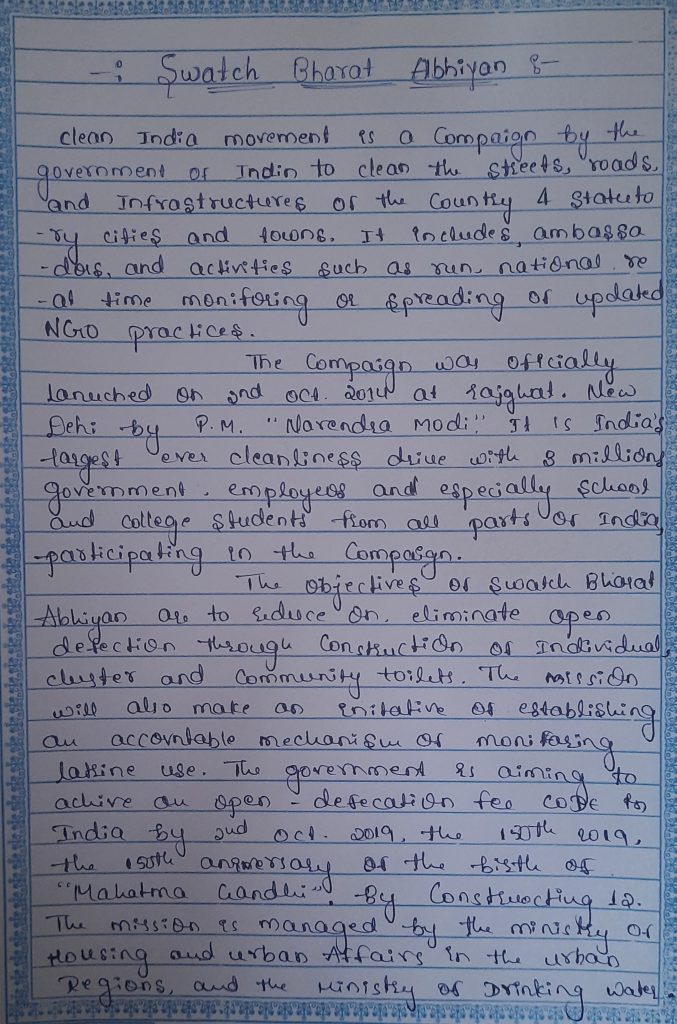 -: Swatch Bharat Abhiyan :-
clean India movement is a Campaign by the
government of India to clean the streets, roads,
and Infrastructures of the Country 4 Statuto
-ry cities and towns. It includes, ambassa
-dors, and activities such as run, national re
-al time monitoring or spreading of updated
NGO practices.
The Campaign was officially
lanuched on 2nd oct. 2014 at rajghat. New
Dehi by P.M. "Narendra Modi" It is India's
largest ever cleanliness drive with 3 millions
government, employees and especially school
and college students from all parts of India,
participating in the Campaign.
The objectives of Swatch Bharat
Abhiyan are to reduce on, eliminate open
defection through Construction of Individual,
cluster and Community toilets. The mission
will also make an initative of establishing
an accountable mechanism of monitaring
latrine use. The government is aiming to
achive an open-defecation fee for
India by 2nd oct. 2019, the 150th 2019,
the 150th anniversary of the birth of
"Mahatma Gandhi". By Constructing 12.
The mission is managed by the ministry of
Housing and urban Affairs in the urban
Regions, and the Ministry of Drinking Water.